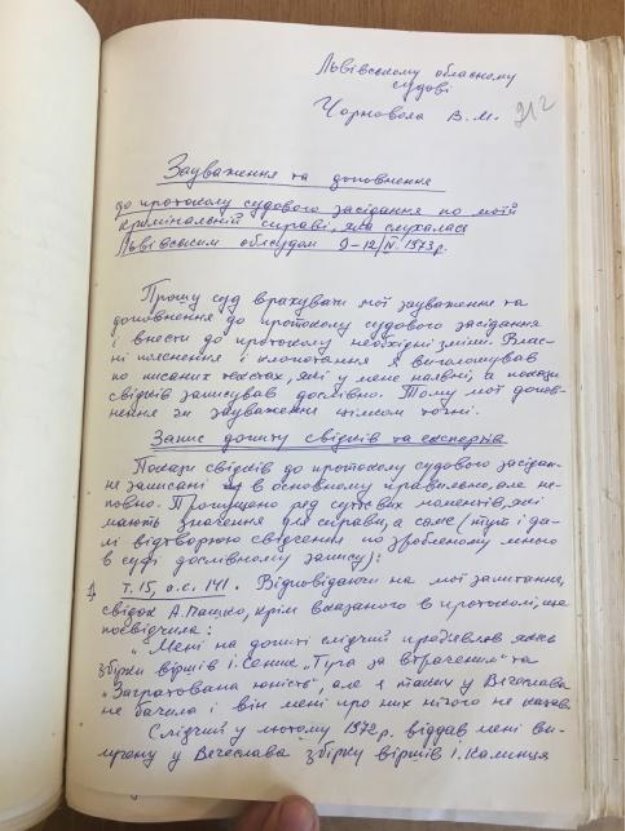 Львівському обласному
судові
Чорновола В.М.
212
Зауваження та доповнення
до протоколу судового засідання по моїй
кримінальній справі, яка слухалась
Львівським облсудом 9–12/IV.1973р.
Прошу суд врахувати мої зауваження та
доповнення до протоколу судового засідання
і внести до протоколу необхідні зміни. Влас-
ні пояснення і клопотання я виголошував
по писаних текстах, які у мене наявні, а покази
свідків записував дослівно. Тому мої допов-
нення й зауваження цілком точні.
Запис допиту свідків та експертів
Покази свідків до протоколу судового засідан-
ня записані в основному правильно, але не-
повно. Пропущено ряд суттєвих моментів, які
мають значення для справи, а саме (тут і да-
лі відтворюю свідчення по зробленому мною
в суді дослівному запису):
т. 15, а.с. 141. Відповідаючи на мої запитання,
свідок А. Пашко, крім вказаного в протоколі, ще
посвідчила:
„Мені на допиті слідчий пред'являв якісь
збірки віршів І. Сеник „Туга за втраченим" та
„Загратована юність", але я таких у Вячеслава
не бачила і він мені про них нічого не казав.
Слідчий у лютому 1972 р. віддав мені ви-
лучену у Вячеслава збірку віршів І. Калинця